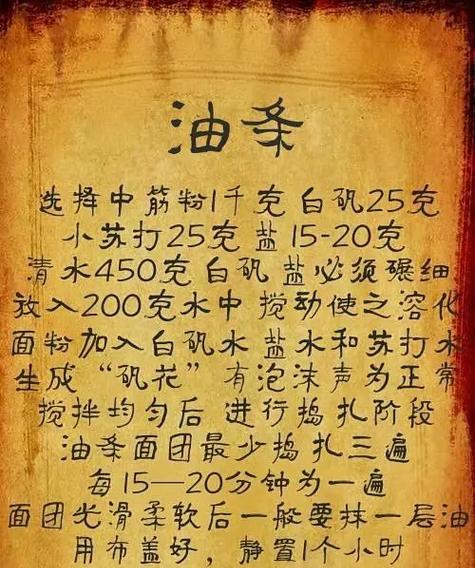 油条
选择中筋粉1千克 白矾25克
小苏打25克 盐 15-20克
清水450克 白矾 盐必须碾细
放入200克水中 搅动使之溶化
面粉加入白矾水 盐水和苏打水
生成“矾花” 有泡沫声为正常
搅拌均匀后 进行捣扎阶段
油条面团最少捣扎三遍
每15—20分钟为一遍
面团光滑柔软后一般要抹一层油
用布盖好，静置1个小时